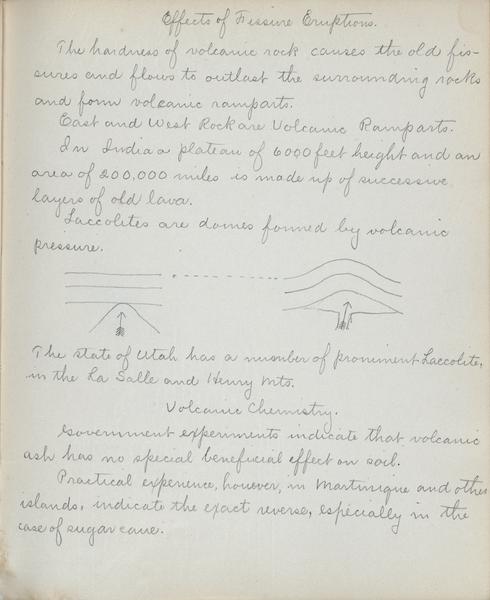 Effects of Fissure Eruptions.
The hardness of volcanic rock causes the old fis-
sures and flows to outlast the surrounding rocks
and form volcanic ramparts.
East and West Rock are Volcanic Ramparts.
In India a plateau of 6000 feet height and an
area of 200,000 miles is made up of successive
layers of old lava.
Laccolites are domes formed by volcanic
pressure.
The state of Utah has a number of prominent Laccolite,
in the La Salle and Henry Mts.
Volcanic Chemistry.
Government experiments indicate that volcanic
ash has no special beneficial effect on soil.
Practical experience, however, in Martinique and other
islands, indicate the exact reverse, especially in the
case of sugar cane.